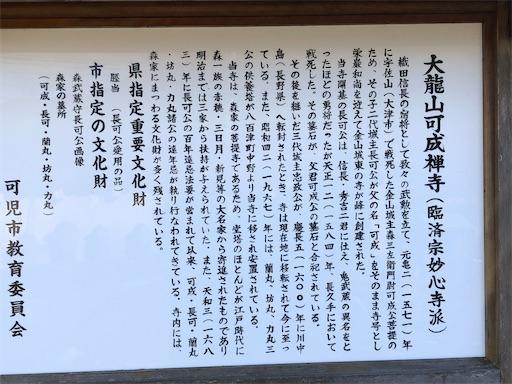 大龍山可成禅寺（臨済宗妙心寺派）
織田信長の宿将として数々の武勲を立て、元亀二（一五七一）年
に宇佐山（大津市）で戦死した金山城主森三左衛門尉可成公菩提の
ため、その子二代城主長可公が父の名「可成」をそのまま寺号とし
栄巌和尚を迎えて金山城東の寺が峰に創建された。
当寺開基の長可公は、信長・秀吉二君に仕え、鬼武蔵の異名をと
ったほどの勇将だったが天正一二（一五八四）年、長久手において
戦死した。その墓石が、父君可成公の墓石と合祀されている。
その後を継いだ三代城主忠政公が、慶長五（一六〇〇）年に川中
島（長野県）へ転封されたとき、寺は現在地に移転されて今に至っ
ている。また、昭和四二（一九六七）年には、蘭丸、坊丸、力丸三
公の供養塔が八百津町中野より当寺に移され安置されている。
当寺は、森家の菩提寺であるため、堂塔のほとんどが江戸時代に
森一族の赤穂・三日月・新見等の大名家から寄進されたものであり
明治までは三家から扶持が与えられていた。また、天和三（一六八
三）年に長可公の百年遠忌法要が営まれて以来、可成・長可・蘭丸
・坊丸・力丸諸公の遠年忌が執り行なわれてきている。寺内には、
森家にまつわる文化財が多く残されている。
県指定重要文化財
脛当　（長可公愛用の品）
市指定の文化財
森武蔵守長可公画像
森家の墓所
（可成・長可・蘭丸・坊丸・力丸）
可児市教育委員会